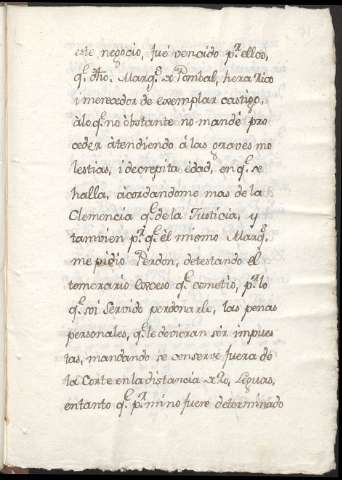 este negocio, fué vencido pr. ellos,
q. dho. Marq. de Pontal, hera Rico
i merecedor de exemplar castigo,
à lo q. no obstante no mandè pro
ceder atendiendo à las graves mo
lestias, i decrepita edad, en q. se
halla, acordandome mas de la
Clemencia q. de la Justicia, y
tambien pr. q. èl mismo Marq.
me pidio Perdon, detestando el
temerario Exceso q. cometio, pr. lo
q. soi Servido perdonarle, las penas
personales, q. le devieran sèr impues
tas, mandando se conserve fuera de
la Corte en la distancia de leguas,
entanto q. pr. mi no fuere determinado